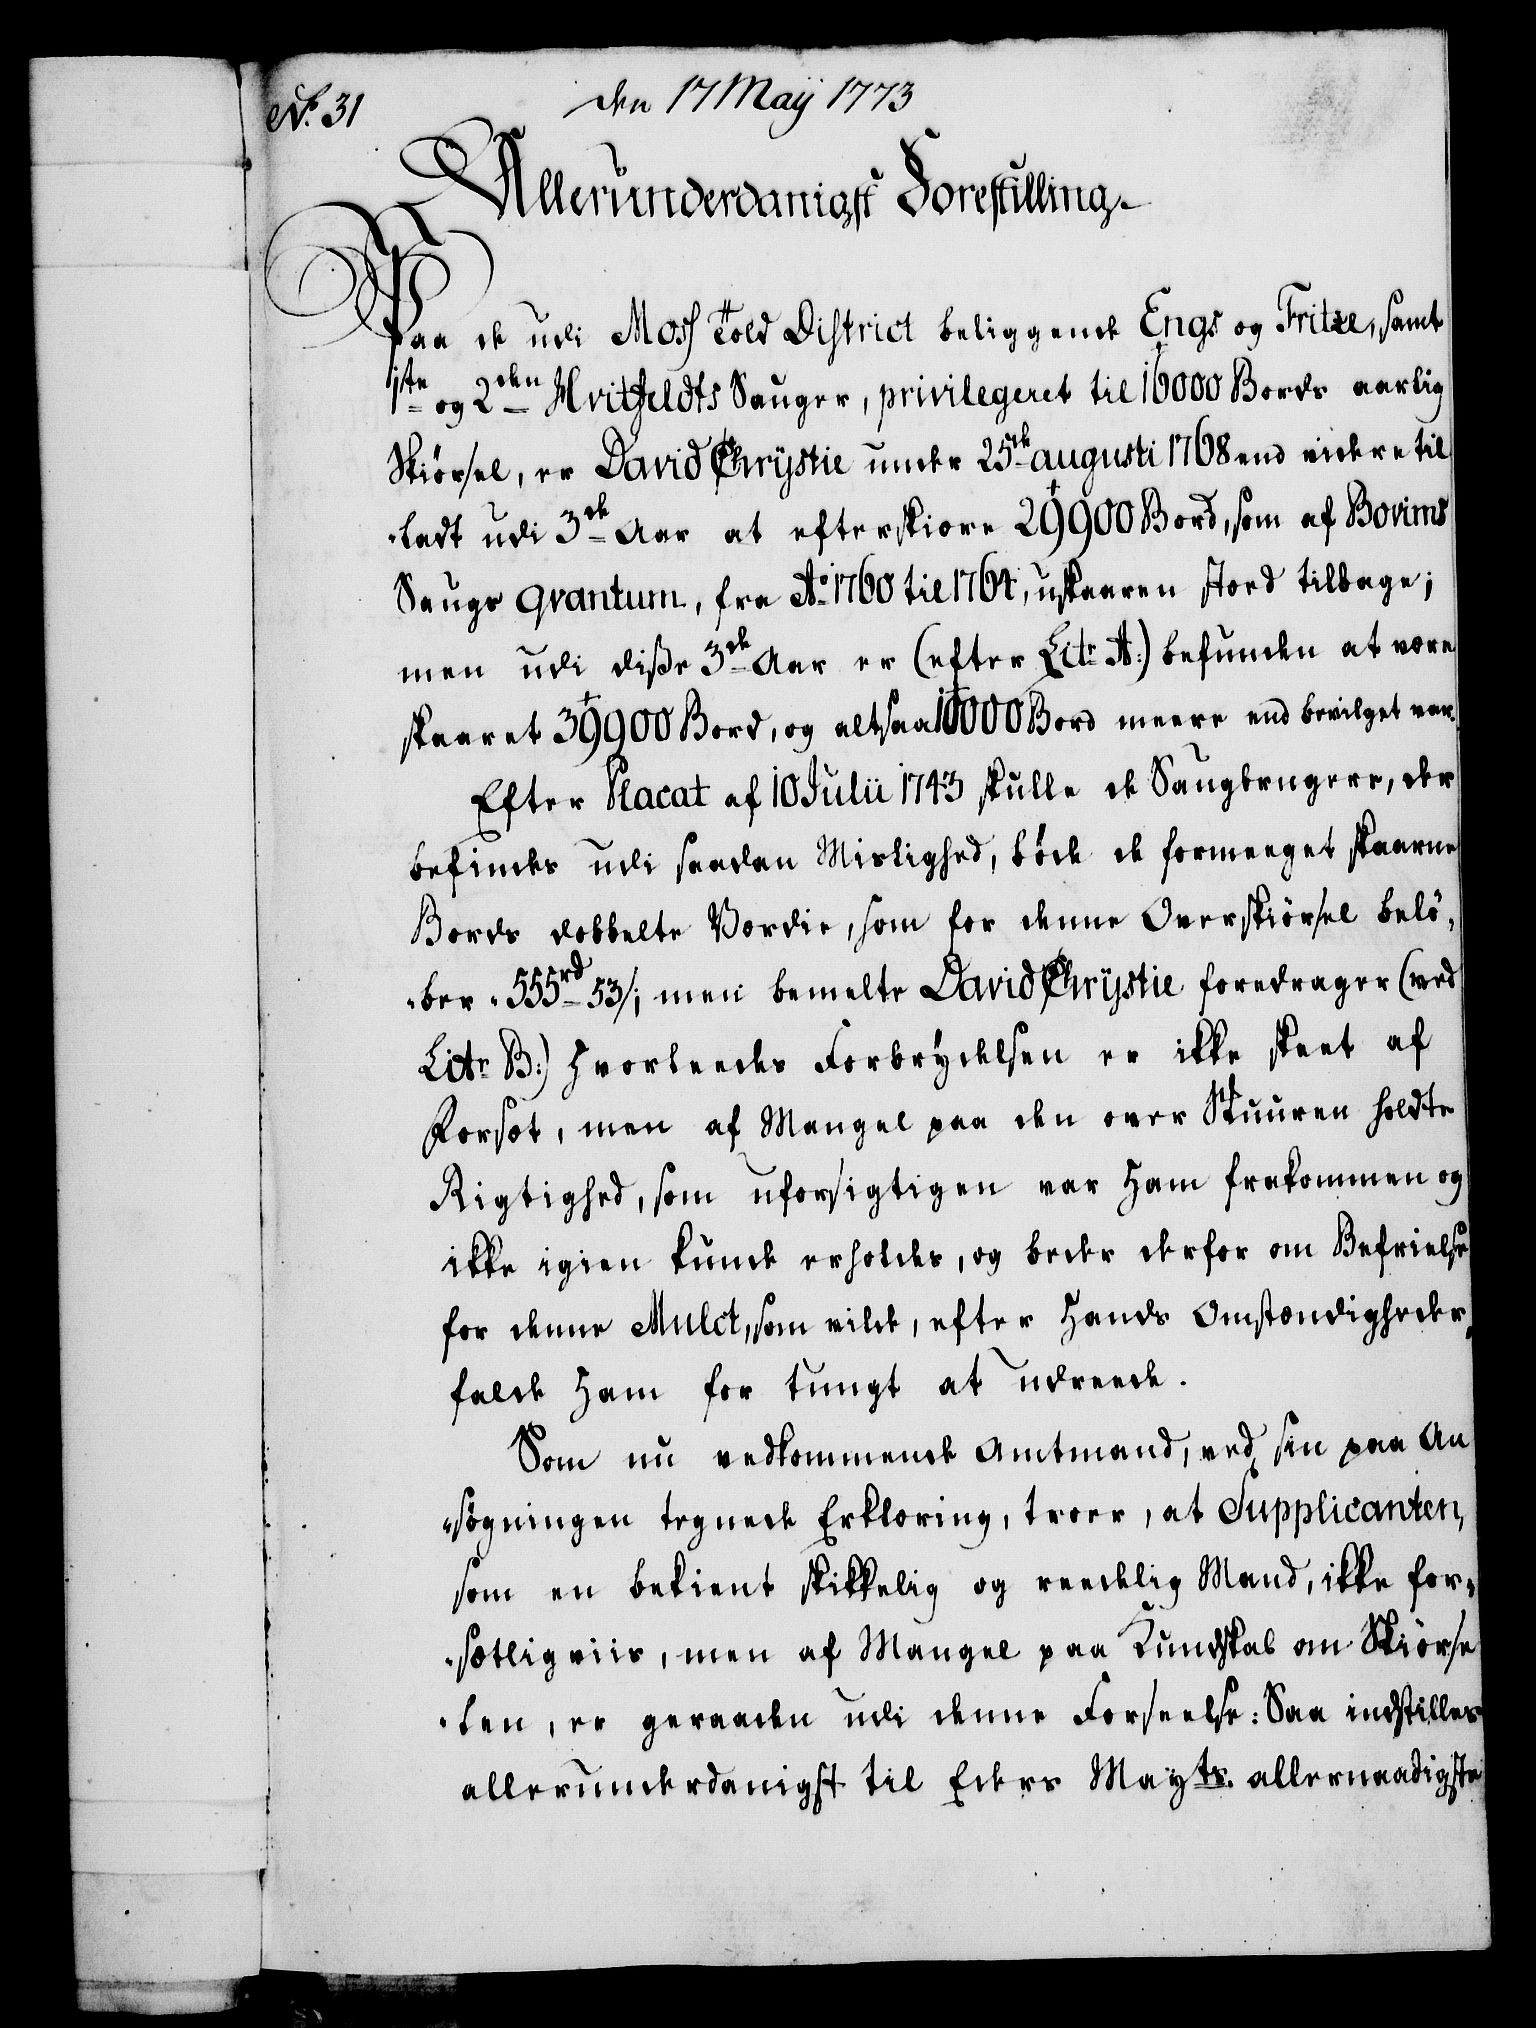 No. 31
den 17 Maij 1773
Allerunderdanigst Forestilling.
Paa de udi Moss Told District beliggende Engs og Fritze, samt
1ste og 2den Hvitfeldts Sauger, privilegeret til 16000 Bords aarlig
Skiørsel, er David Chrÿstie under 25de augusti 1768 end videre til
-ladt udi 3de Aar at efterskiøre 29900 Bord, som af Bovims
Saugs Qvantum, fra Ao 1760 til 1764, uskaaren stod tilbage;
men udi disse 3de Aar er (efter Litr A:) befunden at være
skaaret 39900 Bord, og altsaa 10000 Bord meere end bevilget var.
Efter Placat af 10 Julii 1743 skulle de Saugbrugere, der
befindes udi saadan Mislighed, bøde de formeeget skaarne
Bords dobbelte Værdie, som for denne Overskiørsel belø,
-ber 555rd 53/; men bemelte David Chrÿstie foredrager (ved
Litr B:) hvorleedes Forbrÿdelsen er ikke skeet af
Forsæt, men af Mangel paa den over Skuuren holdte
Rigtighed, som uforsigtigen var Ham frakommen og
ikke igien kunde erholdes, og beder derfor om Befrielse
for denne Mulct, som vilde, efter Hands Omstændigheder,
falde Ham for tungt at udreede.
Som nu vedkommende Amtmand, ved sin paa An
-søgningen tegnede Erklæring, troer, at Supplicanten,
som en bekient skikkelig og reedelig Mand, ikke for-
-sætligviis, men af Mangel paa Kundskab om Skiørse
-len, er geraaden udi denne Forseelse: Saa indstilles
allerunderdanigst til Eders Mayts. allernaadigste